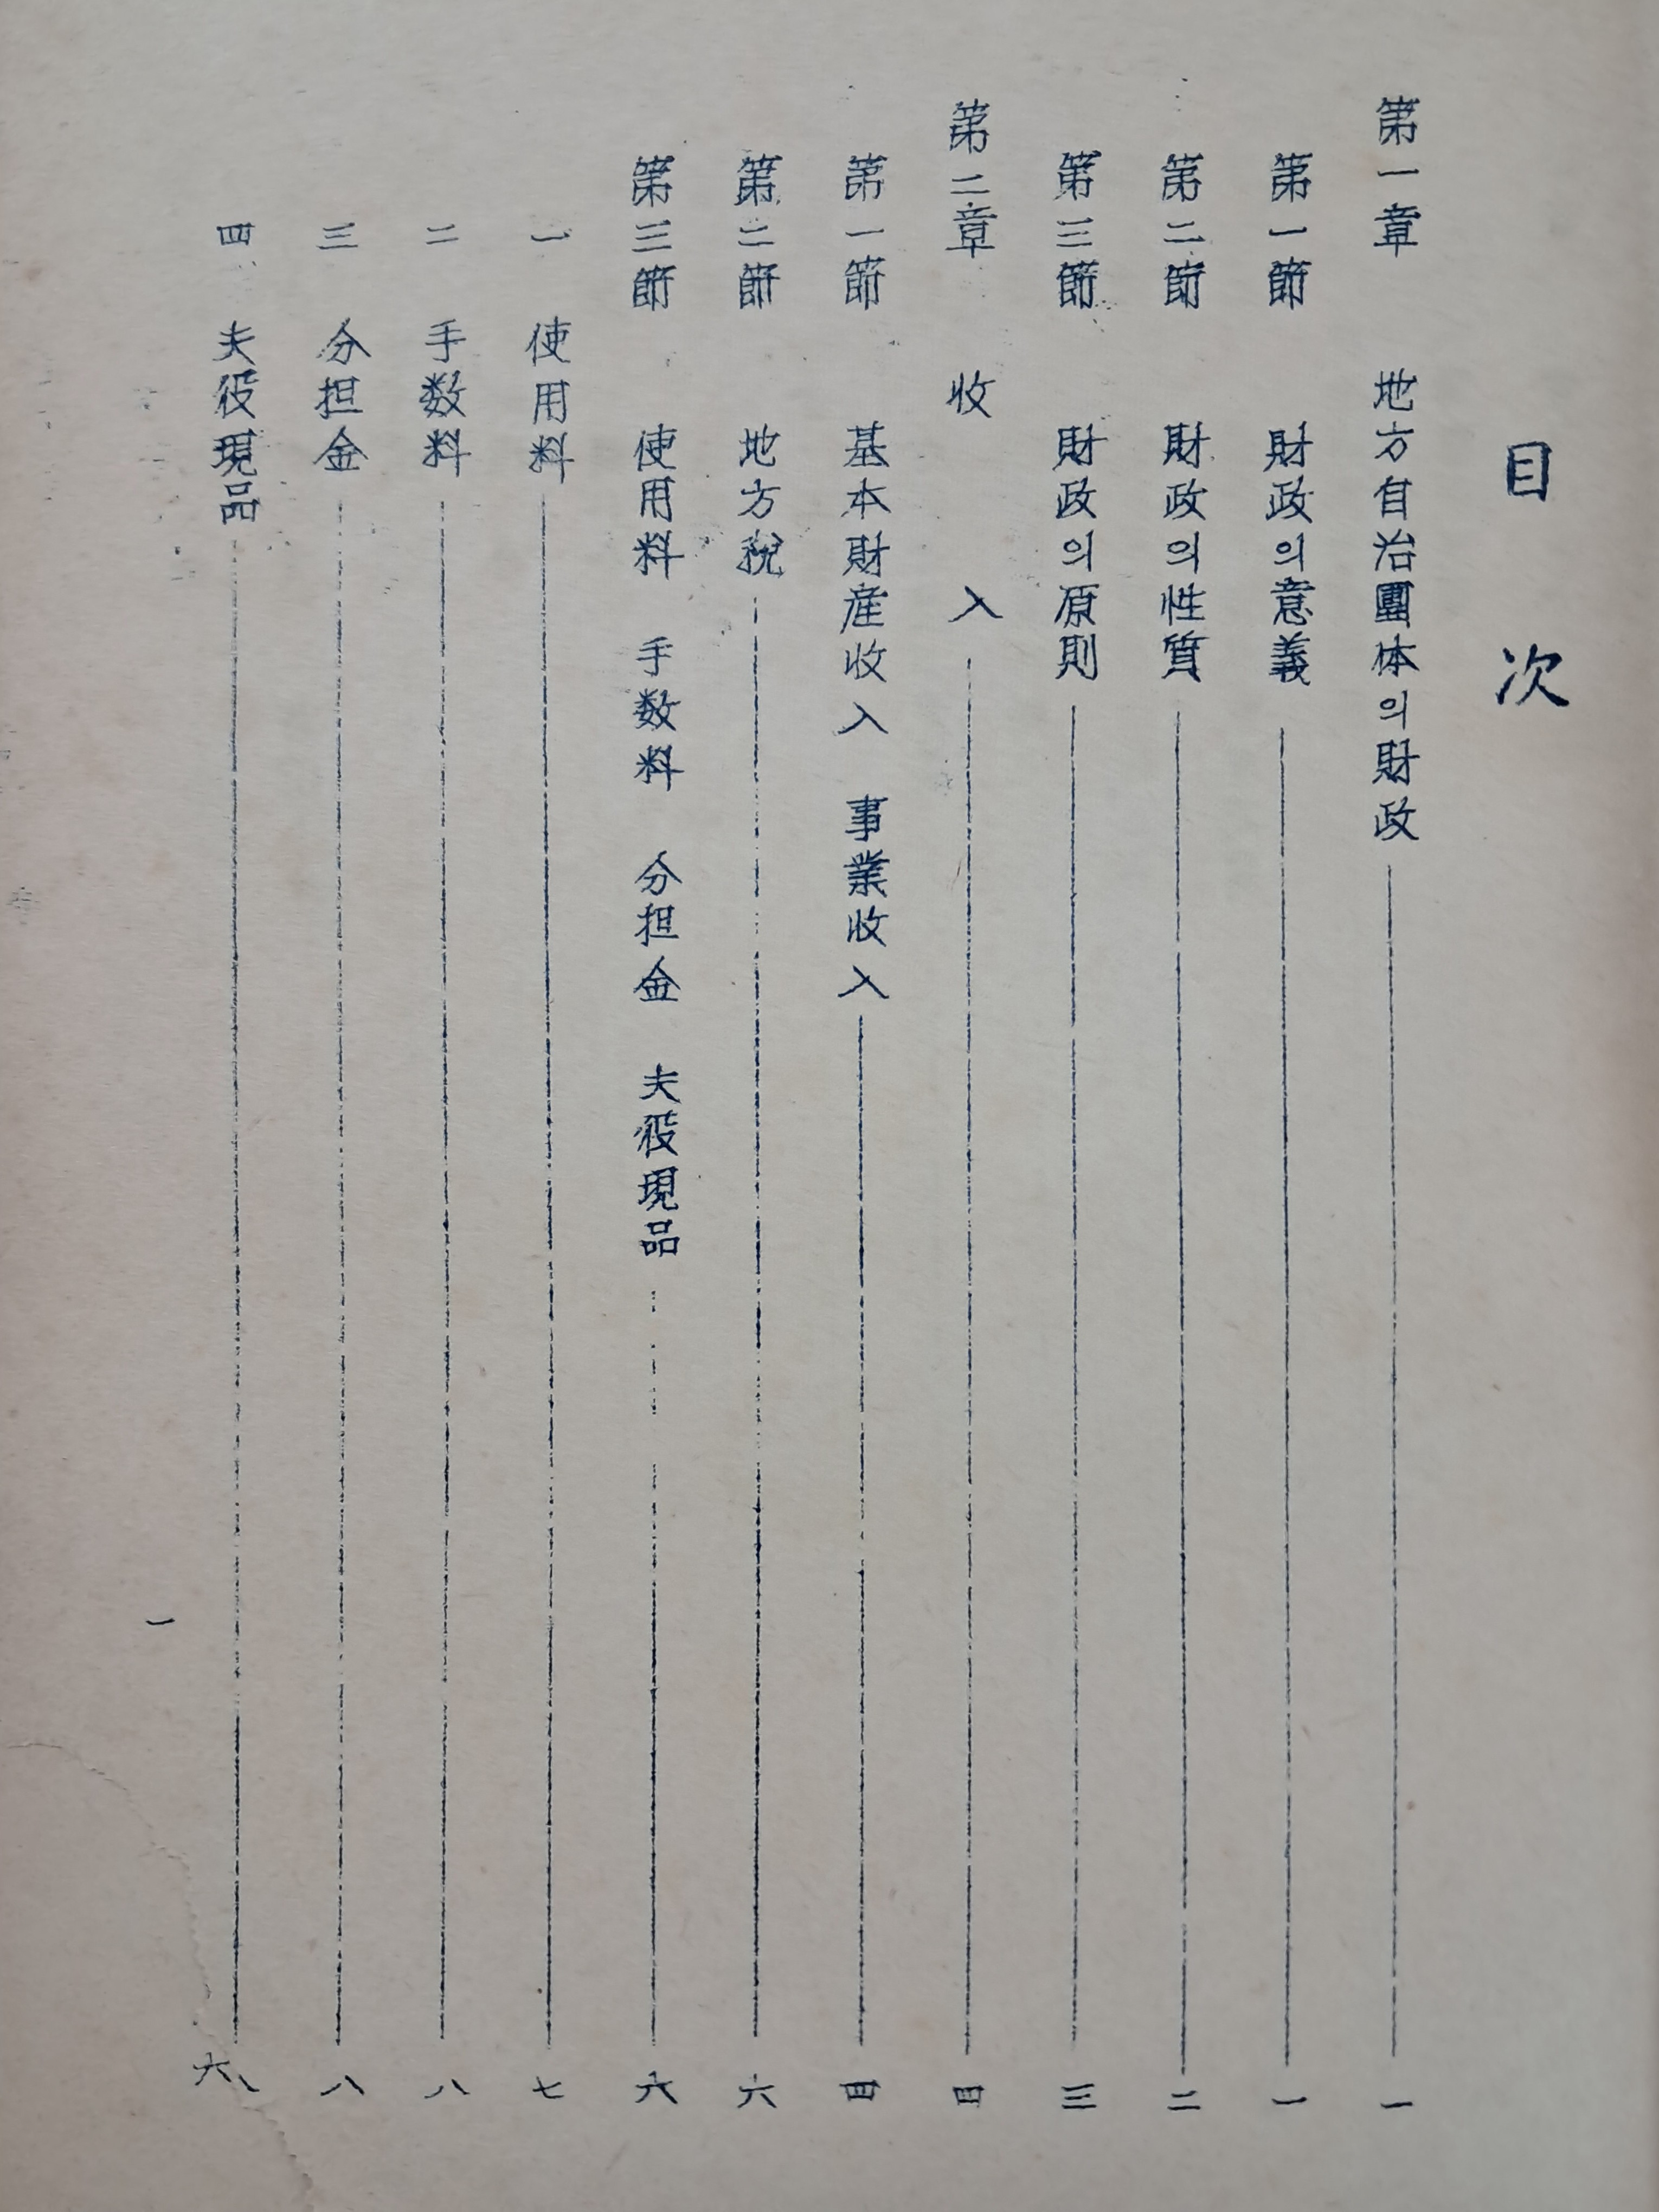 目次
第一章 地方自治團体의財政 一
第一節 財政의意義 一
第二節 財政의性質 二
第三節 財政의原則 三
第二章 收入 四
第一節 基本財産收入 事業收入 四
第二節 地方稅 六
第三節 使用料 手数料 分担金 夫役現品 六
一 使用料 七
二 手数料 八
三 分担金 八
四 夫役現品
一